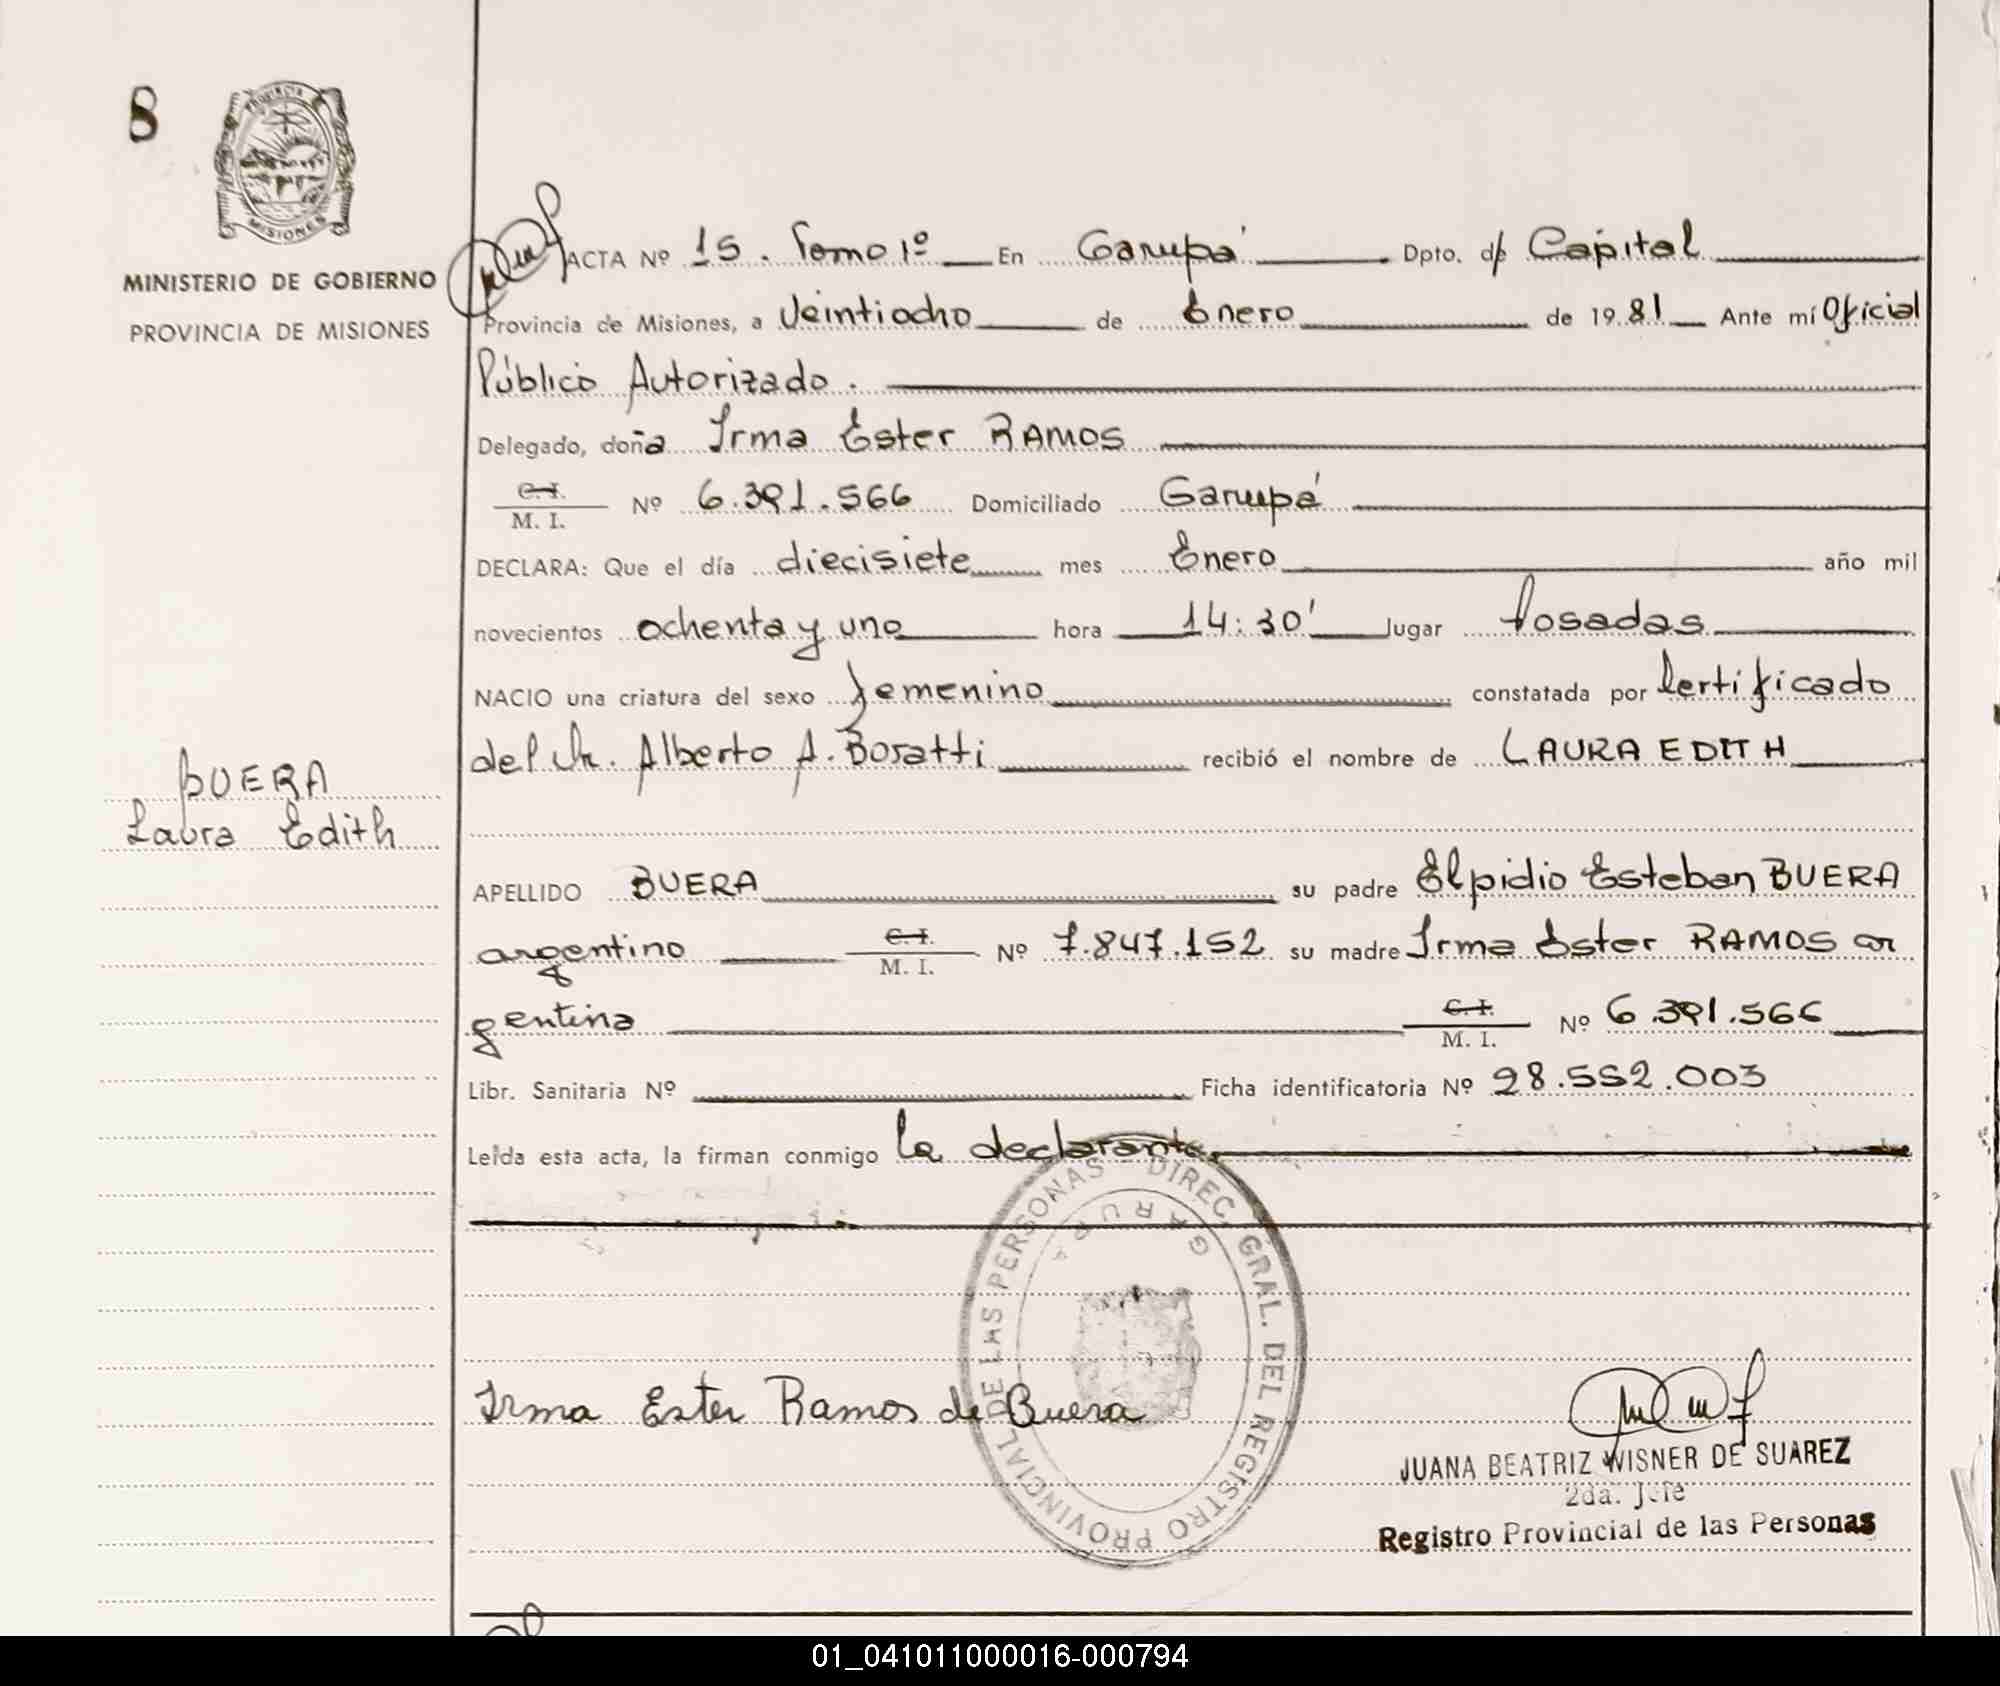 8
PROVINCIA
MISIONES
MINISTERIO DE GOBIERNO
PROVINCIA DE MISIONES
ACTA Nº 15. Tomo 1º En Garupá Dpto. de Capital
Provincia de Misiones, a Veintiocho de Enero de 1981 Ante mí Oficial
Público Autorizado.
Delegado, doña Irma Ester RAMOS
C. I.
M. I.
Nº 6.391.566 Domiciliado Garupá
DECLARA: Que el día diecisiete mes Enero año mil
novecientos ochenta y uno hora 14:30' lugar Posadas
NACIO una criatura del sexo femenino constatada por Certificado
del Dr. Alberto A. Bosatti recibió el nombre de LAURA EDITH
BUERA
Laura Edith
APELLIDO BUERA su padre Elpidio Esteban BUERA
argentino C. I. Nº 7.847.152 su madre Irma Ester RAMOS ar
M. I.
gentina C. I. Nº 6.391.566
M. I.
Libr. Sanitaria Nº Ficha identificatoria Nº 28.552.003
Leída esta acta, la firman conmigo la declarante.
DIREC. GRAL. DEL REGISTRO PROVINCIAL DE LAS PERSONAS
GARUPA
Irma Ester Ramos de Buera
JUANA BEATRIZ WISNER DE SUAREZ
2da. Jefe
Registro Provincial de las Personas
01_041011000016-000794